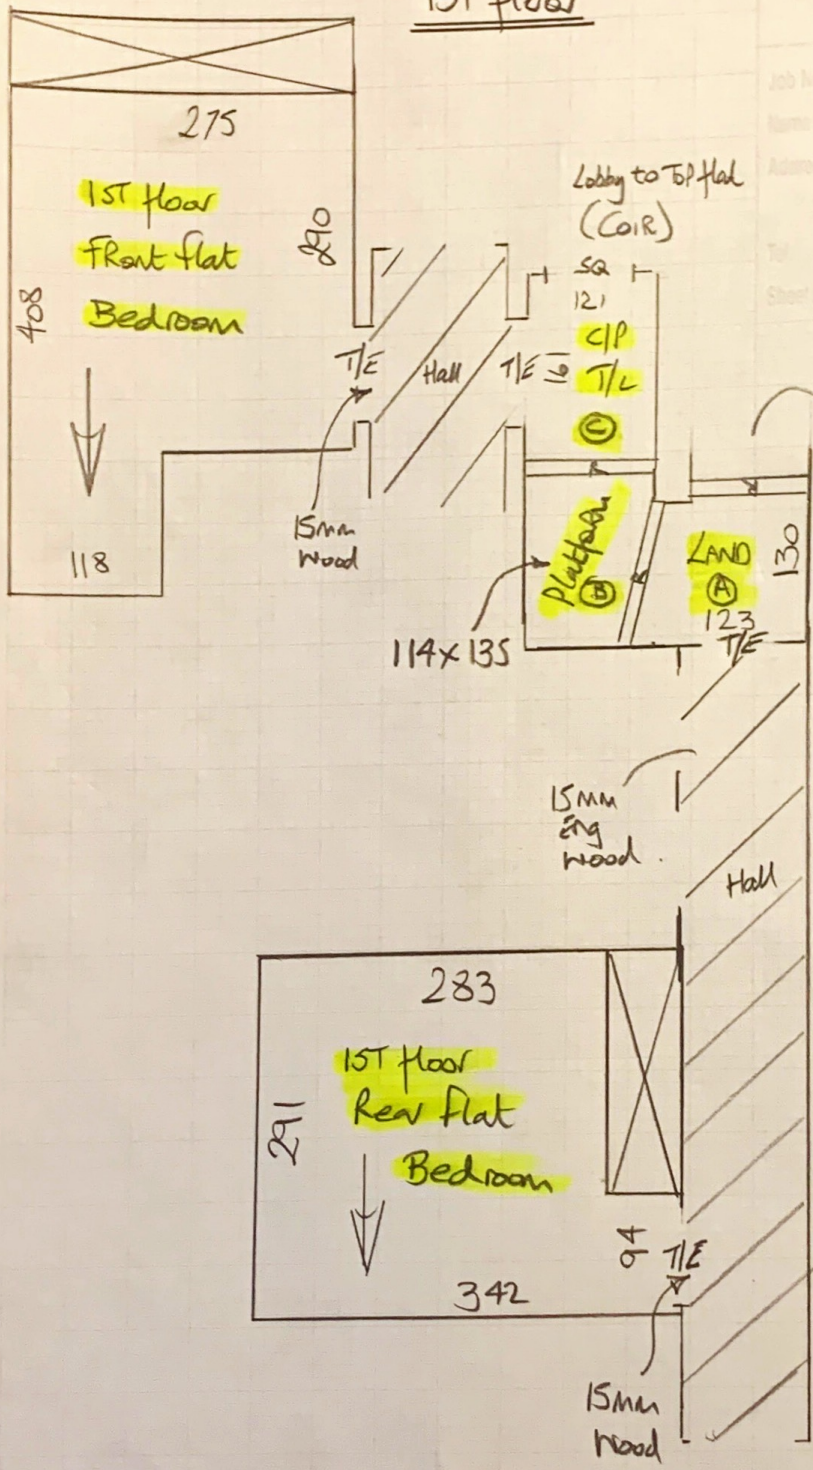 1ST floor
275
1ST floor
Front flat
Bedroom
290
408
118
T/E
Hall
15mm
wood
Lobby to Top flat
(COIR)
SQ
121
C/P
T/L
T/E
C
Platform
B
114x135
LAND
A
123
130
T/E
15mm
Eng
wood.
Hall
283
1ST floor
Rear flat
Bedroom
291
94
T/E
342
15mm
wood